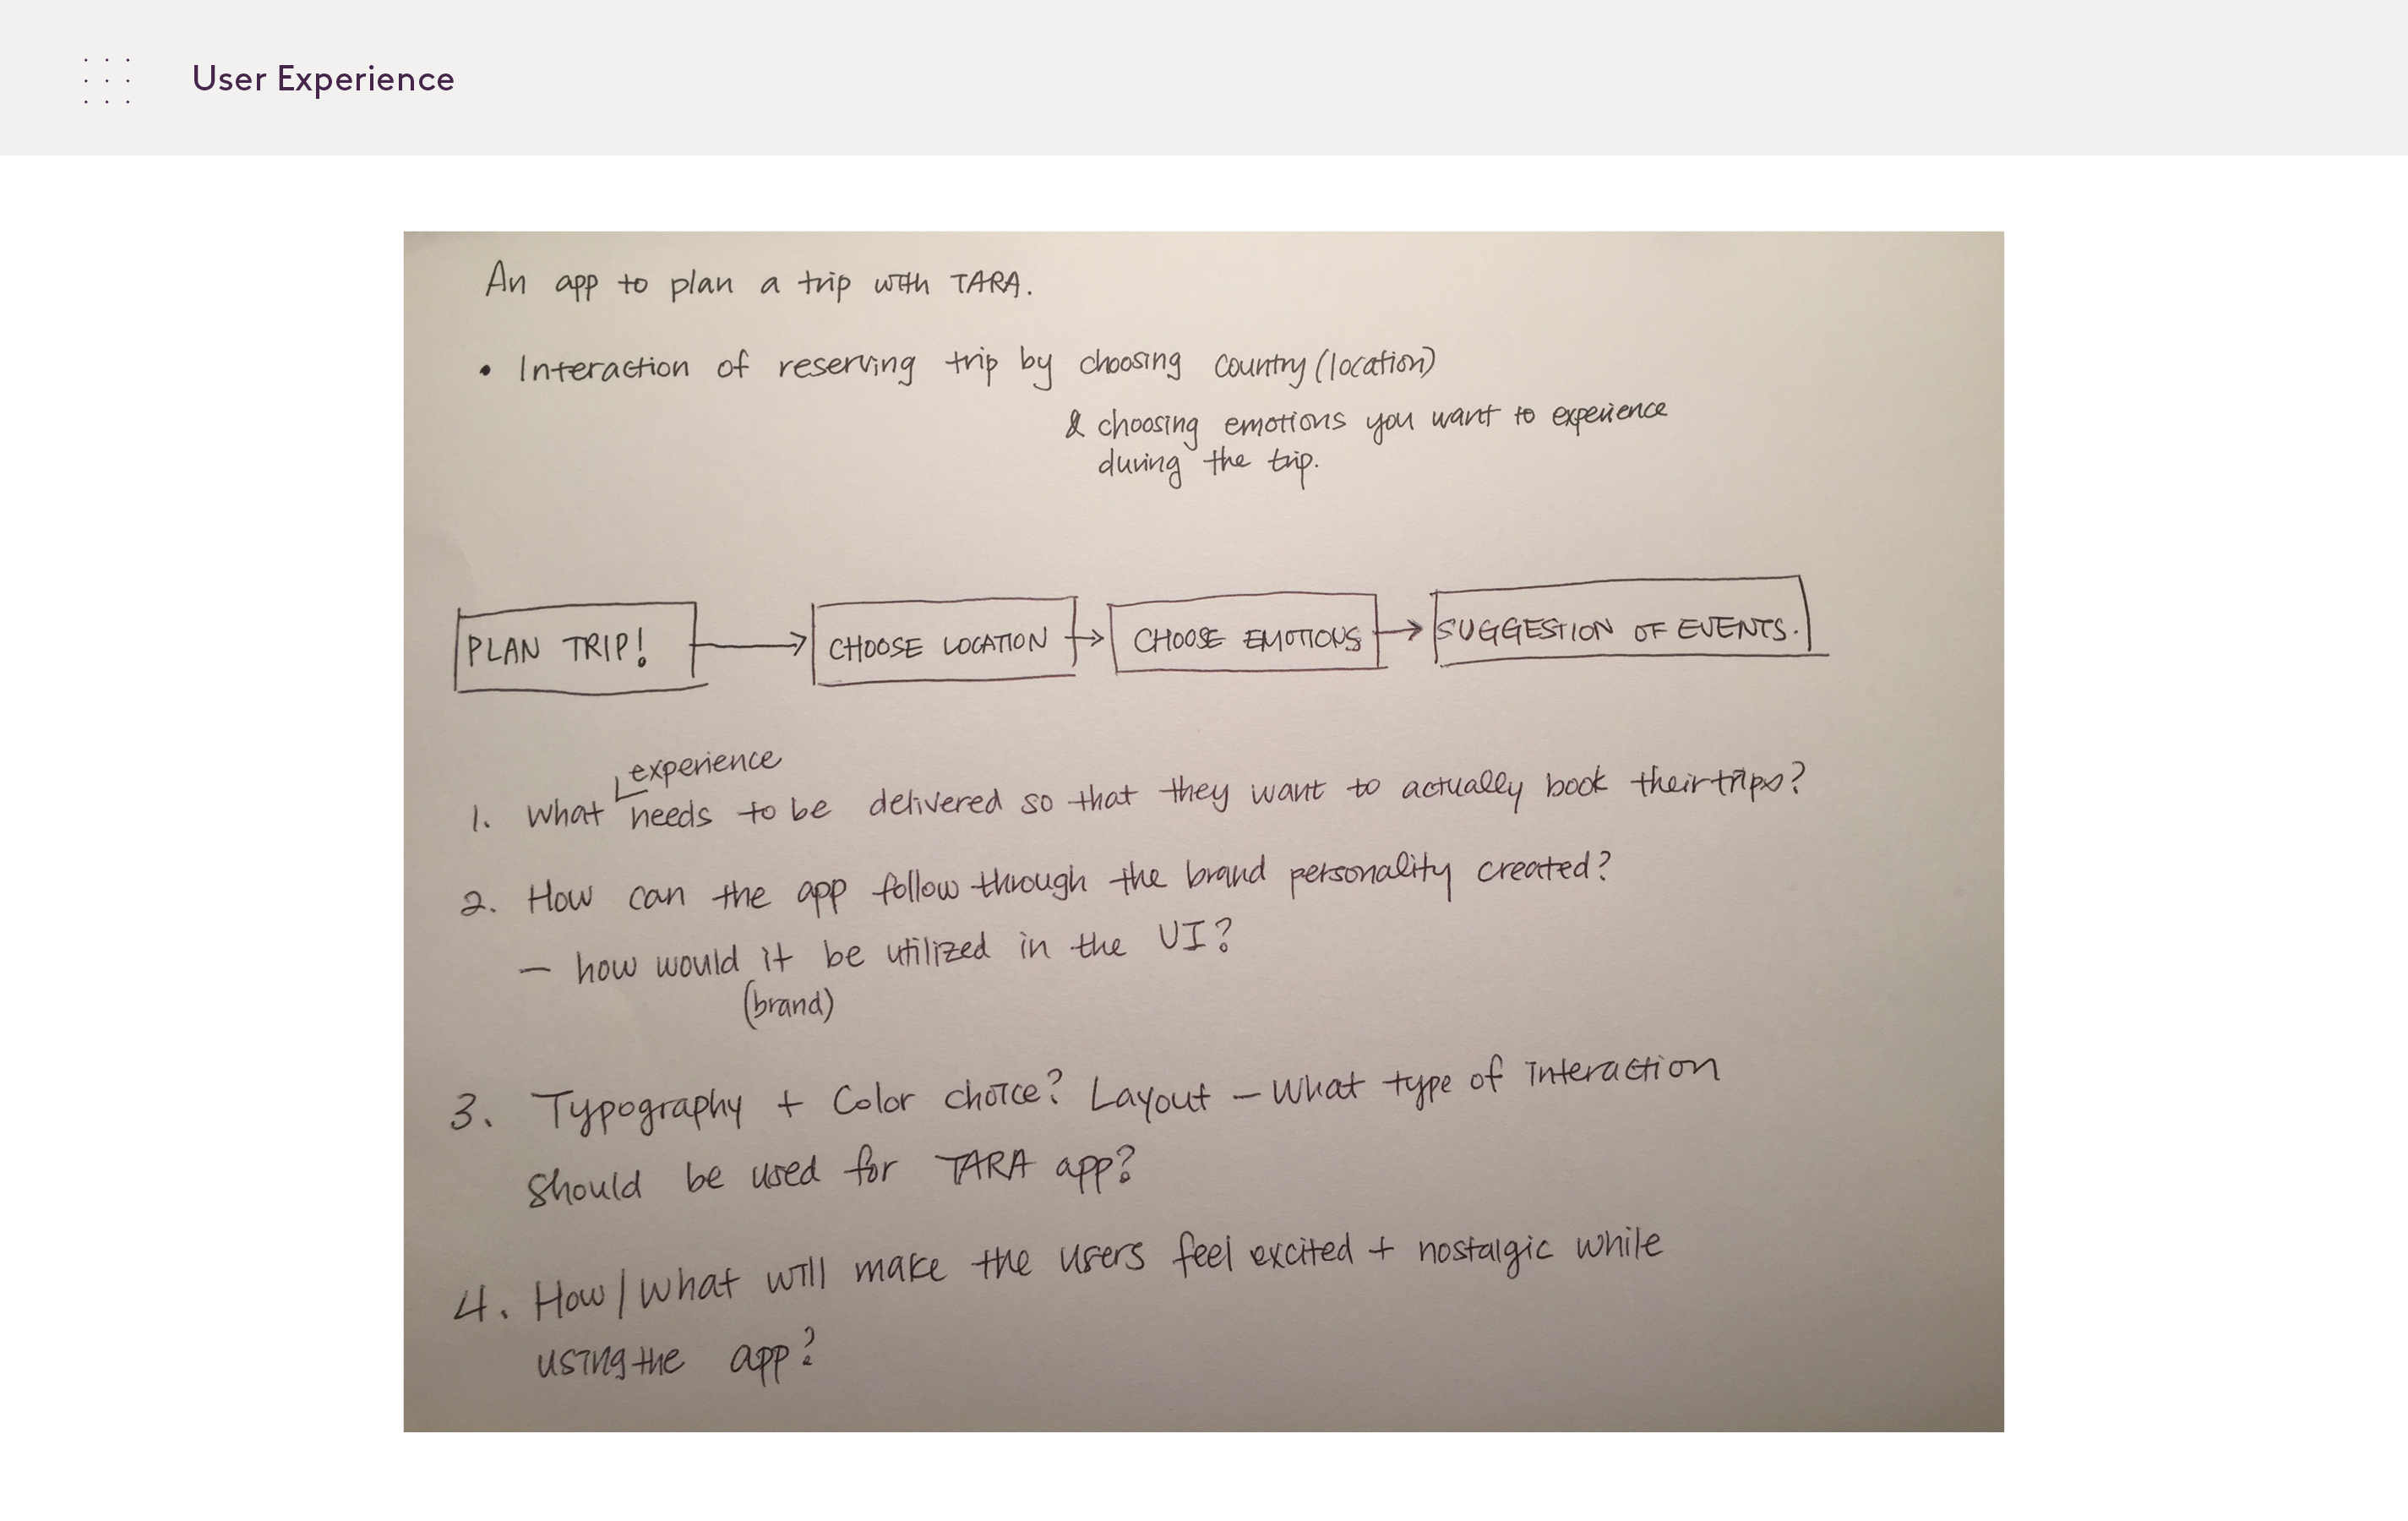 User Experience
An app to plan a trip with TARA.
• Interaction of reserving trip by choosing country (location)
& choosing emotions you want to experience
during the trip.
PLAN TRIP!
CHOOSE LOCATION
CHOOSE EMOTIONS
SUGGESTION OF EVENTS.
experience
1. What needs to be delivered so that they want to actually book their trips?
2. How can the app follow through the brand personality created?
— how would it be utilized in the UI?
(brand)
3. Typography + Color choice? Layout — What type of interaction
should be used for TARA app?
4. How/What will make the users feel excited + nostalgic while
using the app?